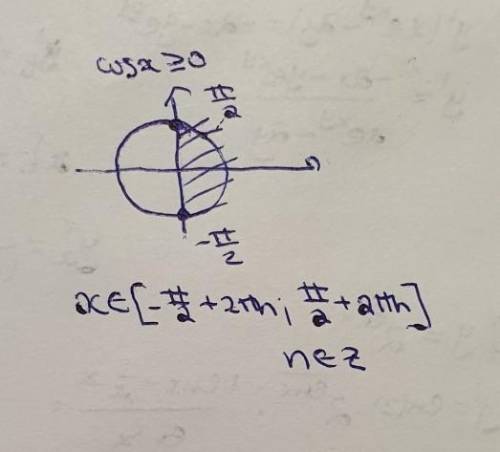 cosx ≥ 0
π/2
-π/2
x∈[-π/2 + 2πn; π/2 + 2πn]
n∈Z